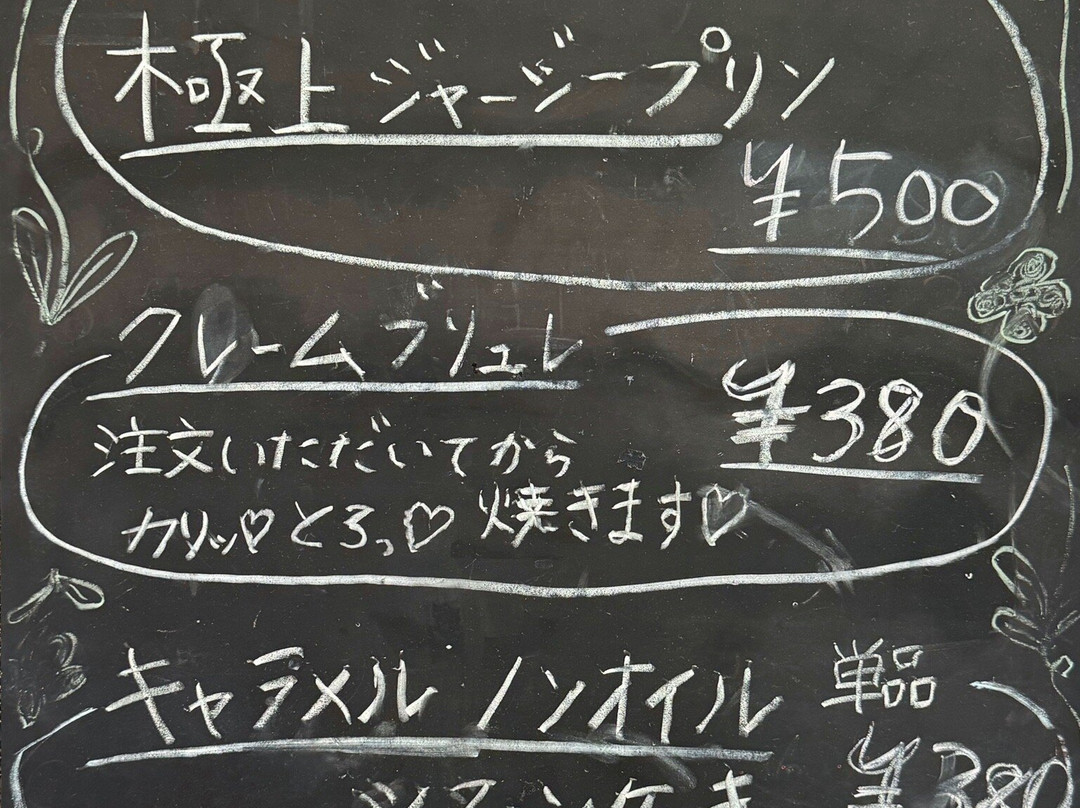 極上ジャージープリン
¥500
クレームブリュレ
¥380
注文いただいてから
カリッ♡とろっ♡焼きます♡
キャラメルノンオイル 単品
シフォンケーキ ¥380